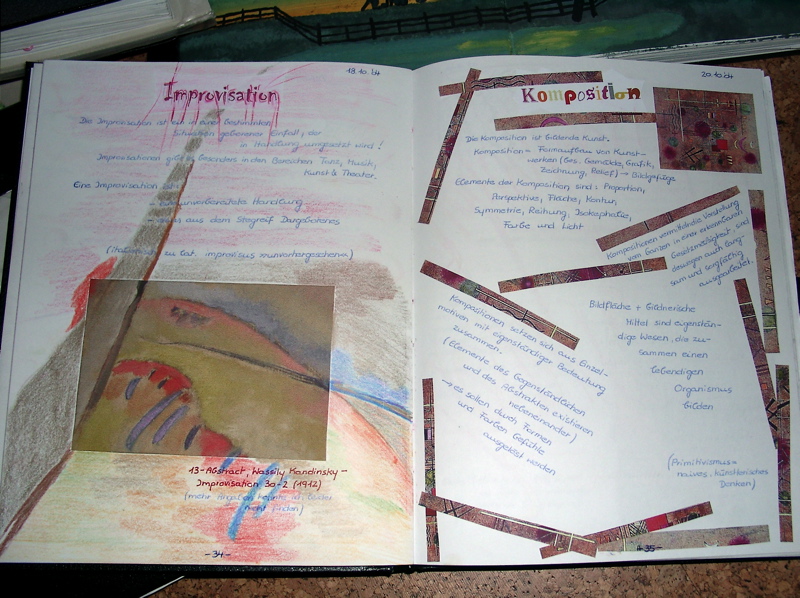 18.10.04
Improvisation
Die Improvisation ist ein in einer bestimmten
Situation geborener Einfall, der
in Handlung umgesetzt wird!
Improvisationen gibt es besonders in den Bereichen Tanz, Musik,
Kunst & Theater.
Eine Improvisation ist:
- eine unvorbereitete Handlung
- aus dem Stegreif Dargebotenes
(italienisch zu lat. improvisus = unvorhergesehen)
13-Abstract, Wassily Kandinsky -
Improvisation 30-2 (1912)
(mehr Angaben konnte ich leider
nicht finden)
- 34 -
20.10.04
Komposition
Die Komposition ist bildende Kunst.
Komposition = Formaufbau von Kunst-
werken (bes. Gemälde, Grafik,
Zeichnung, Relief) → Bildgefüge
Elemente der Komposition sind: Proportion,
Perspektive, Fläche, Kontur,
Symmetrie, Reihung, Isokephalie,
Farbe und Licht
Kompositionen vermitteln die Vorstellung
vom Ganzen in einer erkennbaren
Gesetzmäßigkeit, sind
deswegen auch lang-
sam und sorgfältig
ausgearbeitet.
Kompositionen setzen sich aus Einzel-
motiven mit eigenständiger Bedeutung
zusammen.
(Elemente des Gegenständlichen
und des Abstrakten existieren
nebeneinander)
→ es sollen durch Formen
und Farben Gefühle
ausgelöst werden
Bildfläche + bildnerische
Mittel sind eigenstän-
dige Wesen, die zu-
sammen einen
lebendigen
Organismus
bilden
(Primitivismus =
naives, künstlerisches
Denken)
- 35 -